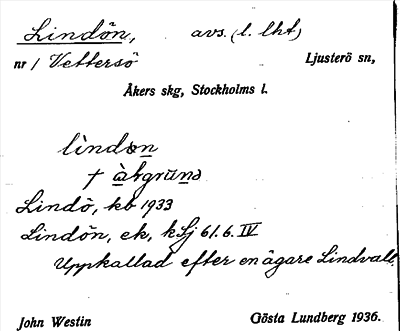 Lindön, avs. (l. lht)
nr 1 Vettersö Ljusterö sn,
Åkers skg, Stockholms l.
lindøn
+ àbgrùnd
Lindö, kb 1933
Lindön, ek, kSj 61.6. IV
Uppkallad efter en ägare Lindvall.
John Westin Gösta Lundberg 1936.